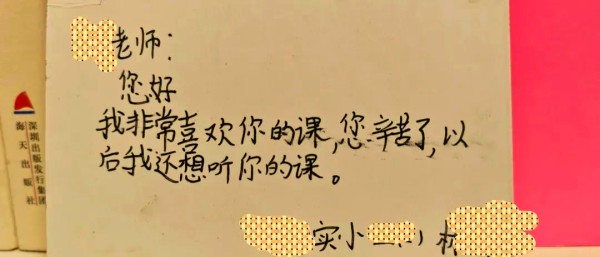 老师：
您好
我非常喜欢你的课，您辛苦了，以
后我还想听你的课。
实小
深圳出版发行集团
海天出版社